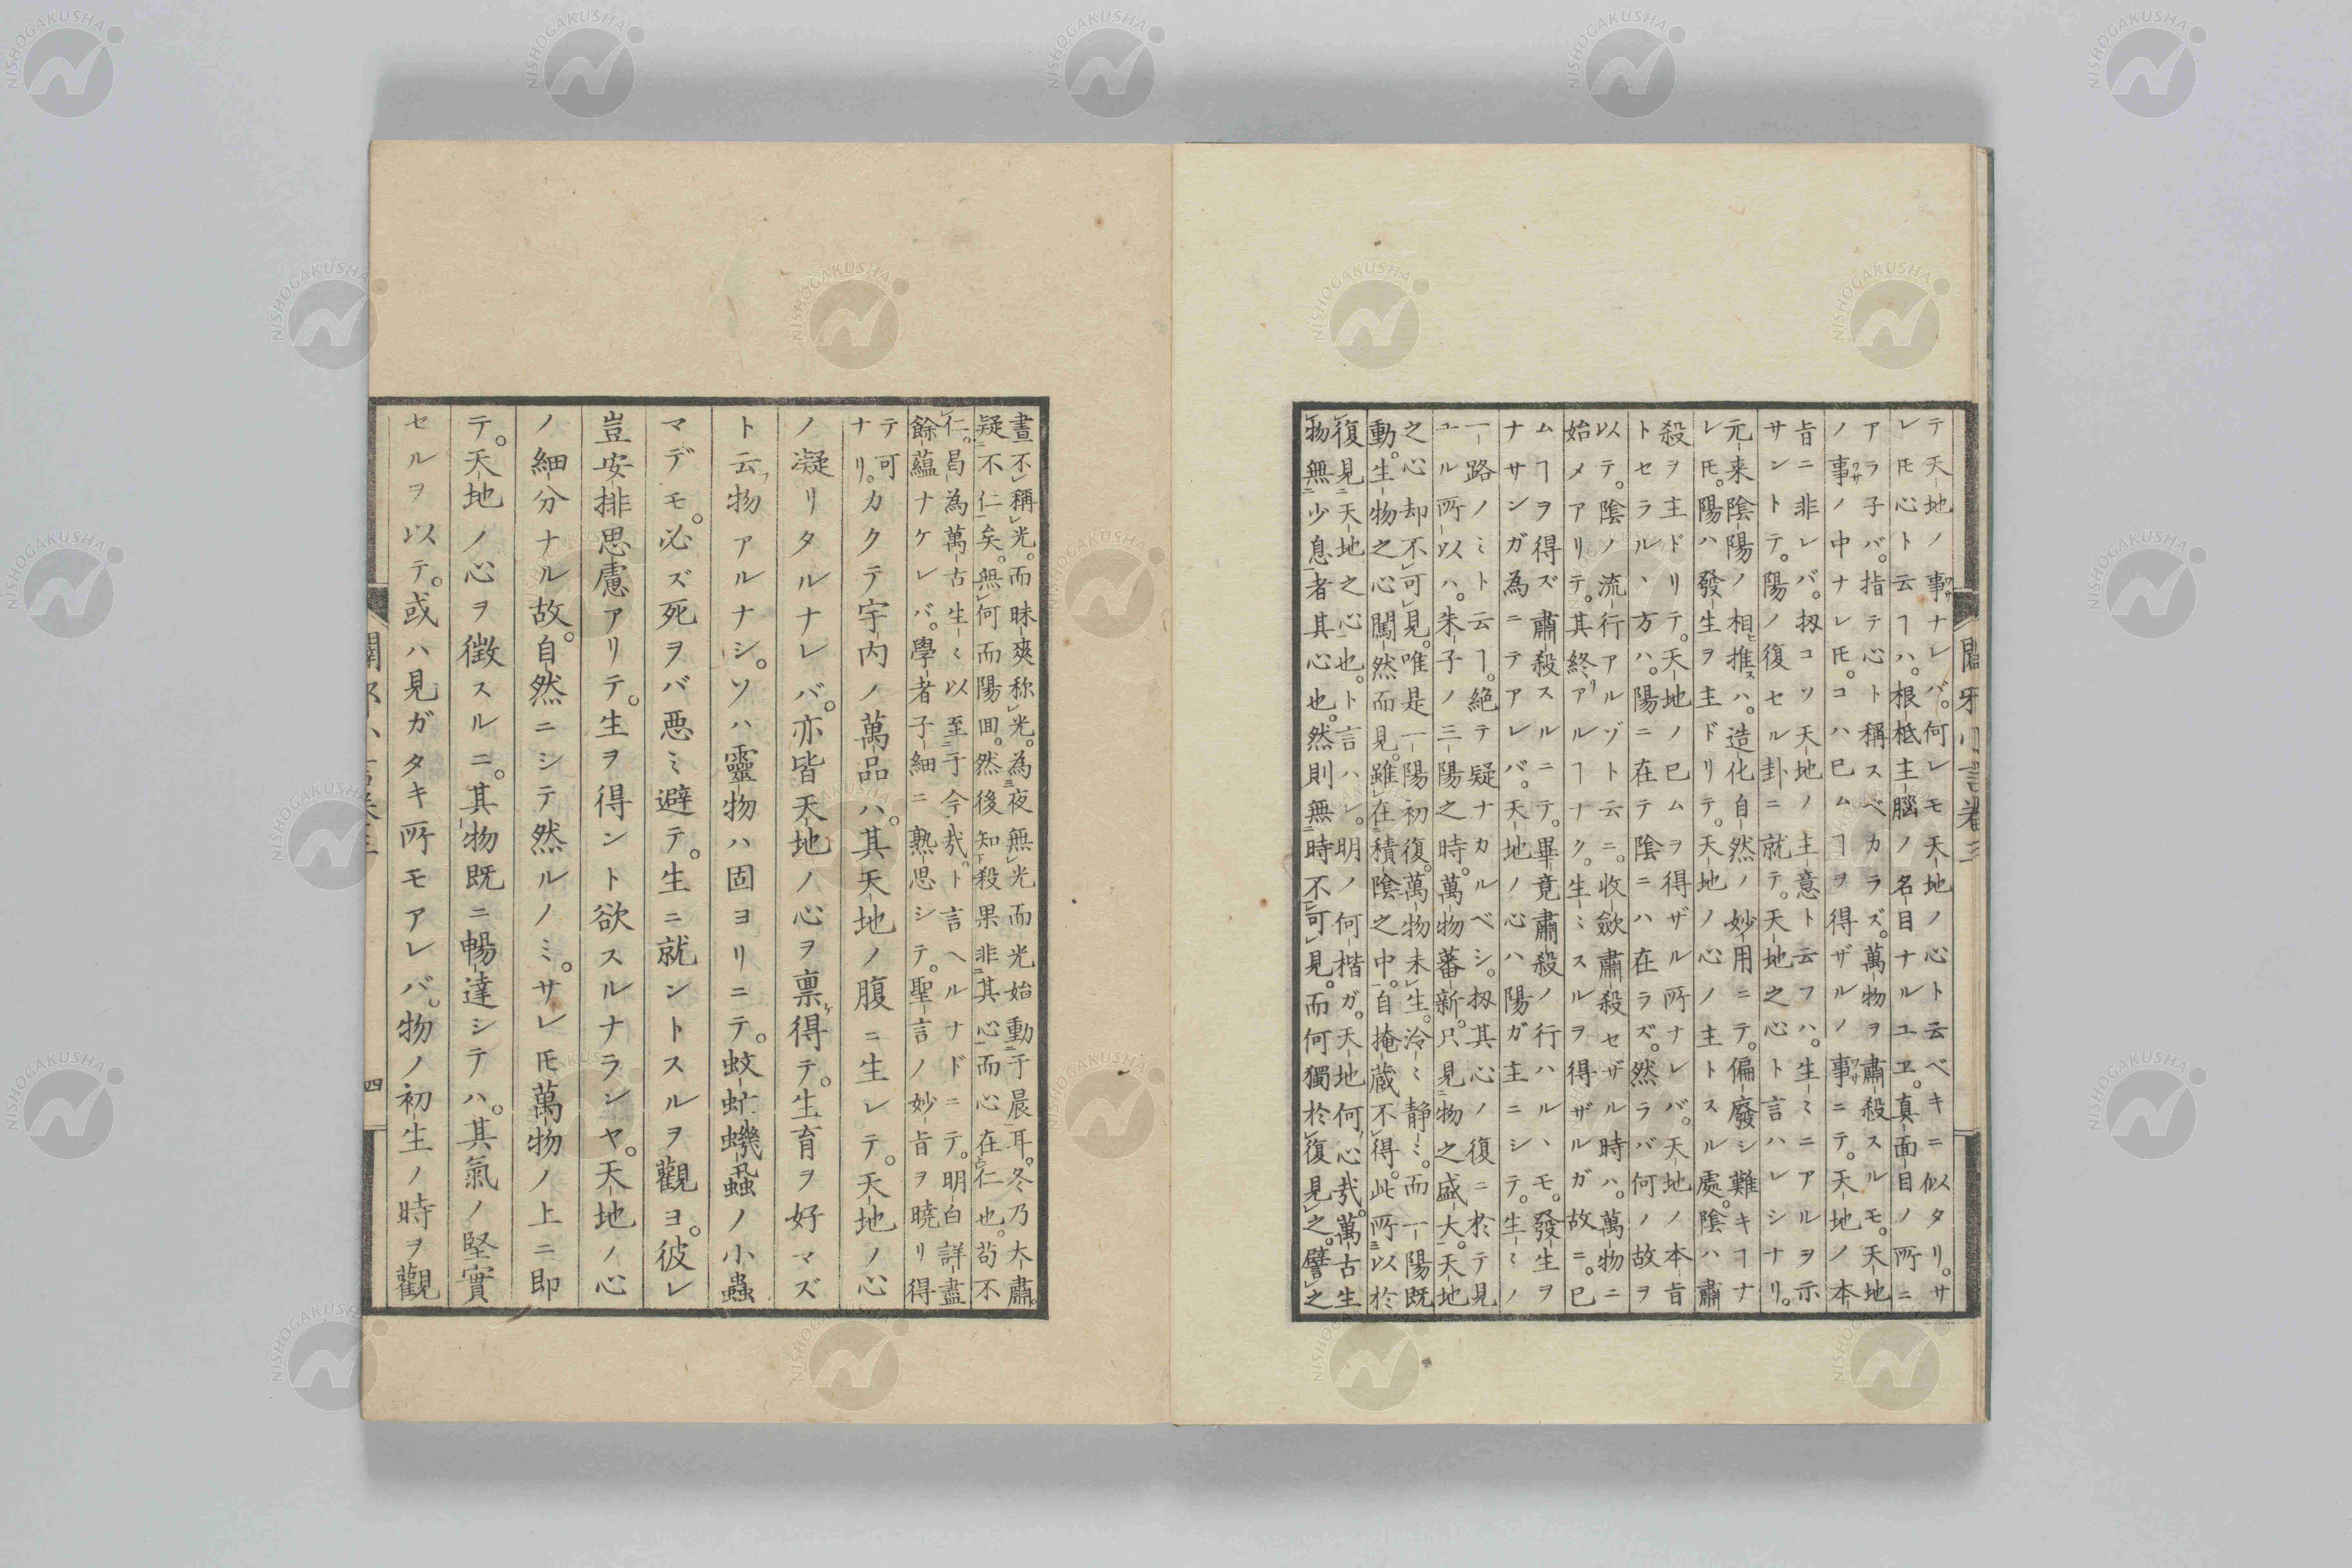 テ天地ノ事ナレバ。何レモ天地ノ心ト云ベキニ似タリ。サ
レ𪜈心ト云ヿハ。根柢主腦ノ名目ナルユヱ。真面目ノ所ニ
アラ子バ。指テ心ト稱スベカラズ。萬物ヲ肅殺スルモ。天地
ノ事ノ中ナレ𪜈。コハ已ムヿヲ得ザルノ事ニテ。天地ノ本
旨ニ非レバ。扨コソ天地ノ主意ト云フハ。生〻ニアルヲ示
サントテ。陽ノ復セル卦ニ就テ。天地之心ト言ハレシナリ。
元来陰陽ノ相推スハ。造化自然ノ妙用ニテ。偏廢シ難キヿナ
レ𪜈。陽ハ發生ヲ主ドリテ。天地ノ心ノ主トスル處。陰ハ肅
殺ヲ主ドリテ。天地ノ已ムヲ得ザル所ナレバ。天地ノ本旨
トセラルヽ方ハ。陽ニ在テ陰ニハ在ラズ。然ラバ何ノ故ヲ
以テ。陰ノ流行アルゾト云ニ。收歛肅殺セザル時ハ。萬物ニ
始メアリテ。其終リアルヿナク。生〻スルヲ得ザルガ故ニ。已
ムヿヲ得ズ肅殺スルニテ。畢竟肅殺ノ行ハルヽモ。發生ヲ
ナサンガ為ニテアレバ。天地ノ心ハ陽ガ主ニシテ。生〻ノ
一路ノミト云ヿ。絶テ疑ナカルベシ。扨其心ノ復ニ於テ見
ユル所以ハ。朱子ノ三陽之時。萬物蕃新。只見物之盛大。天地
之心却不可見。唯是一陽初復。萬物未生。冷〻静〻。而一陽既
動。生物之心闖然而見。雖在積陰之中。自掩蔵不得。此所以於
復見天地之心也。ト言ハレ。明ノ何楷ガ。天地何心哉。萬古生
物無少息者其心也。然則無時不可見。而何獨於復見之。譬之
晝不稱光。而昧爽称光。為夜無光而光始動于晨耳。冬乃大肅。
疑不仁矣。無何而陽回。然後知殺果非其心而心在仁也。苟不
仁。曷為萬古生〻以至于今哉。ト言ヘルナドニテ。明白詳盡
餘蘊ナケレバ。學者子細ニ熟思シテ。聖言ノ妙旨ヲ曉リ得
テ可
ナリ。カクテ宇内ノ萬品ハ。其天地ノ腹ニ生レテ。天地ノ心
ノ凝リタルナレバ。亦皆天地ノ心ヲ禀ケ得テ。生育ヲ好マズ
ト云フ物アルナシ。ソハ靈物ハ固ヨリニテ。蚊虻蟣蝨ノ小蟲
マデモ。必ズ死ヲバ悪ミ避テ。生ニ就ントスルヲ觀ヨ。彼レ
豈安排思慮アリテ。生ヲ得ント欲スルナランヤ。天地ノ心
ノ細分ナル故。自然ニシテ然ルノミ。サレ𪜈萬物ノ上ニ即
テ。天地ノ心ヲ徴スルニ。其物既ニ暢達シテハ。其氣ノ堅實
セルヲ以テ。或ハ見ガタキ所モアレバ。物ノ初生ノ時ヲ觀
四